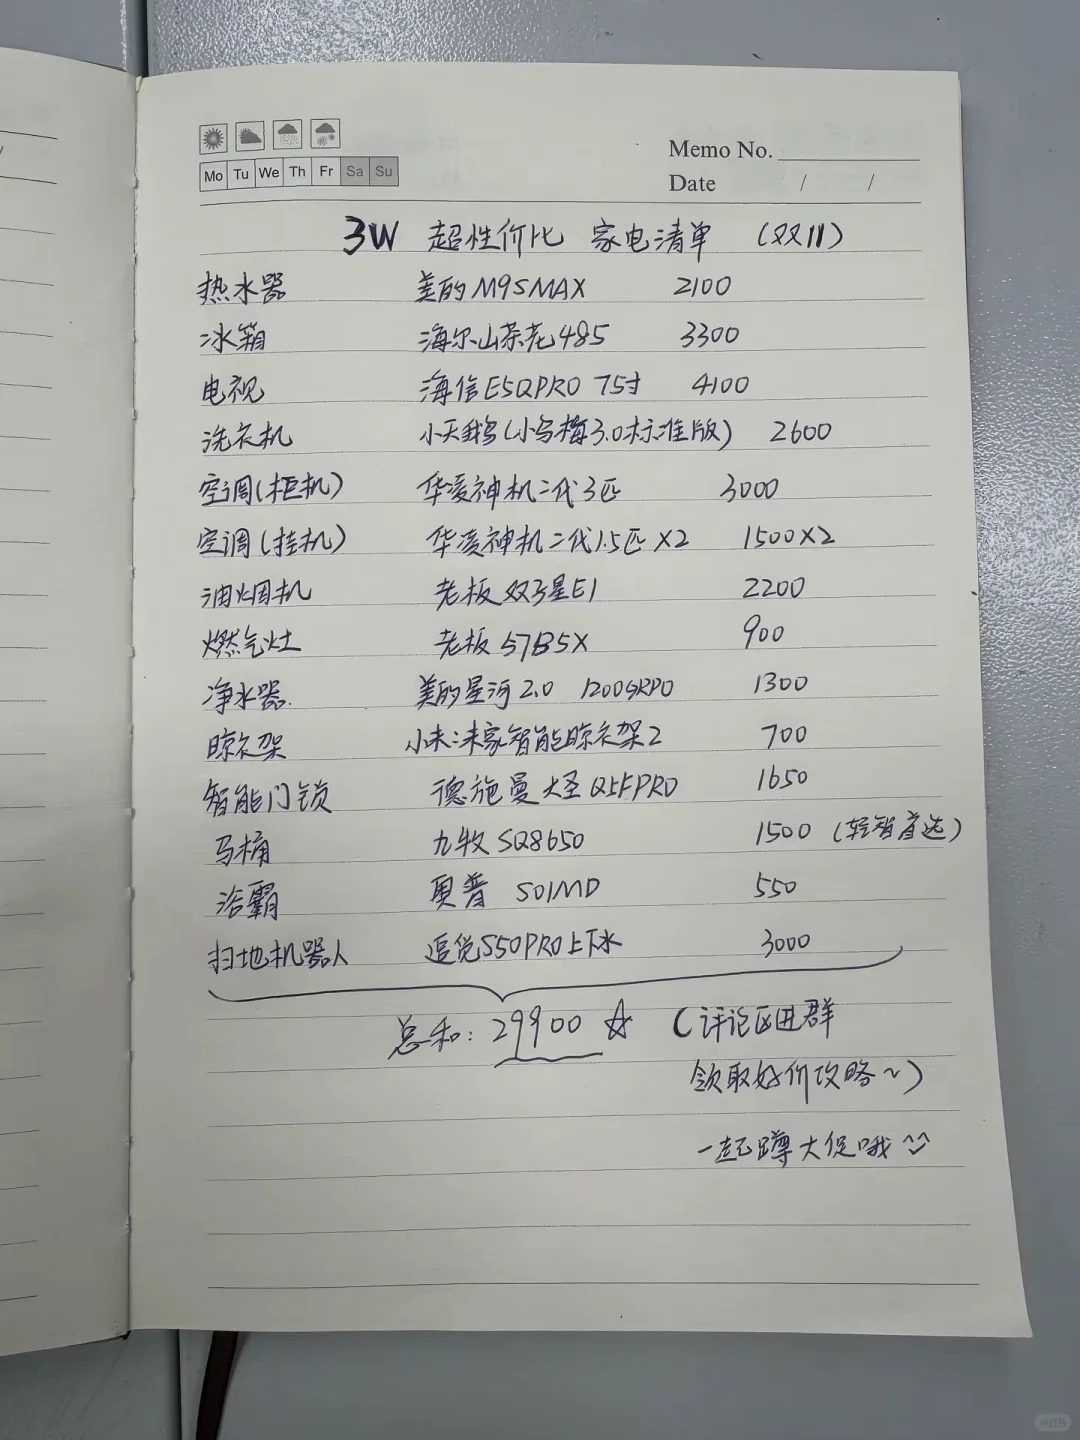 Mo Tu We Th Fr Sa Su
Memo No.
Date / /
3W 超性价比 家电清单 (双11)
热水器 美的M9SMAX 2100
冰箱 海尔山茶花485 3300
电视 海信E5QPRO 75寸 4100
洗衣机 小天鹅(小乌梅3.0标准版) 2600
空调(柜机) 华凌神机二代3匹 3000
空调(挂机) 华凌神机二代1.5匹 X2 1500X2
油烟机 老板双子星E1 2200
燃气灶 老板57B5X 900
净水器. 美的星河2.0 1200GRPO 1300
晾衣架 小米:米家智能晾衣架2 700
智能门锁 德施曼大圣Q5FPRO 1650
马桶 九牧SQ8650 1500 (轻智首选)
浴霸 奥普 S01MD 550
扫地机器人 追觅S50PRO上下水 3000
总和: 29900 ☆ (评论区进群
领取好价攻略~)
一起蹲大促哦^^
小红书